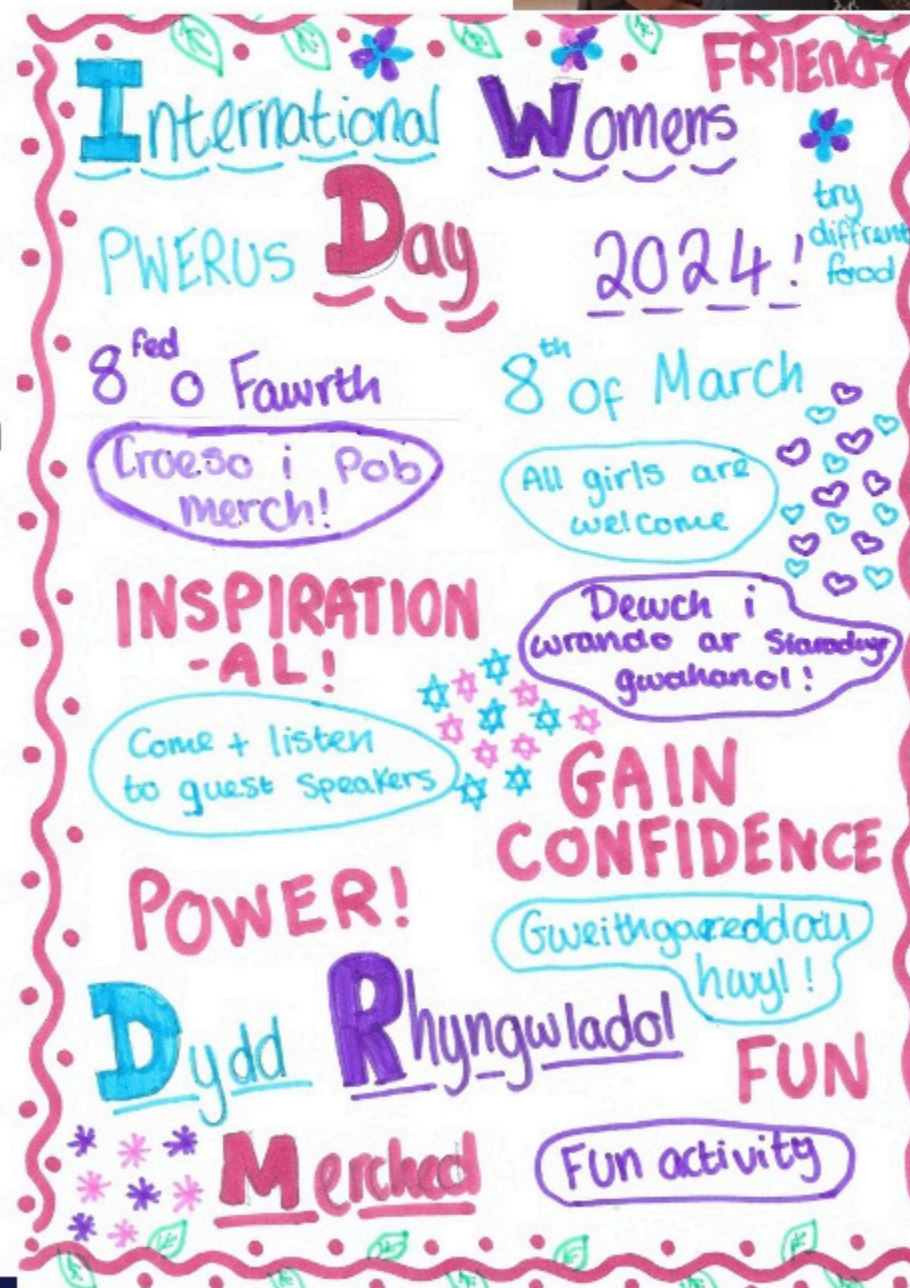 FRIENDS
International Womens
PWERUS Day 2024!
try
diffrent
food
8fed o Fawrth
8th of March
Croeso i Pob
merch!
All girls are
welcome
INSPIRATION
-AL!
Dewch i
wrando ar Siaradwyr
gwahanol!
Come + listen
to guest speakers
GAIN
CONFIDENCE
POWER!
Gweithgareddau
hwyl!
Dydd Rhyngwladol
FUN
Merched
Fun activity